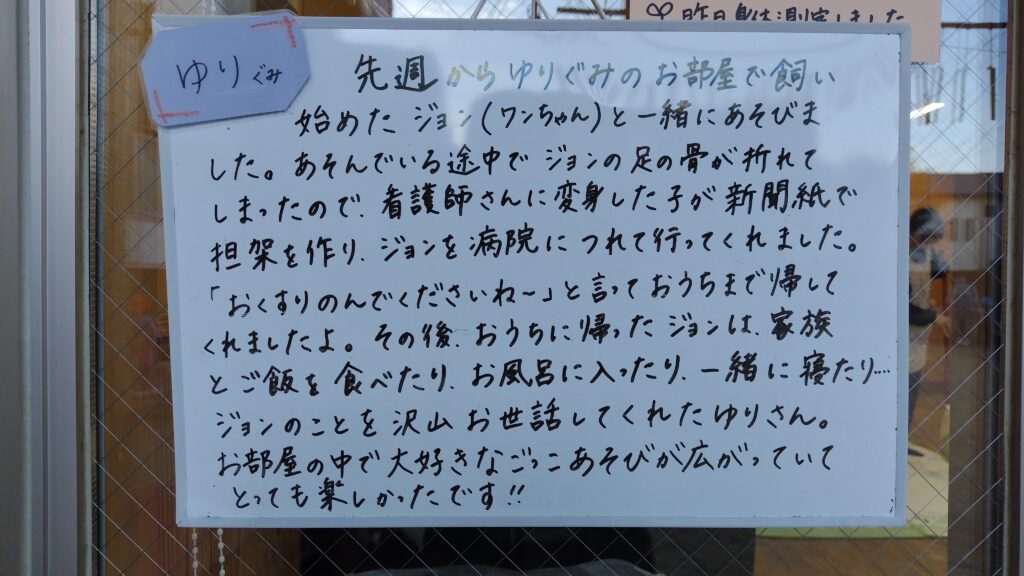 昨日身体測定しました
ゆりぐみ
先週からゆりぐみのお部屋で飼い
始めた ジョン(ワンちゃん)と一緒にあそびま
した。あそんでいる途中でジョンの足の骨が折れて
しまったので、看護師さんに変身した子が新聞紙で
担架を作り、ジョンを病院につれて行ってくれました。
「おくすりのんでくださいね〜」と言っておうちまで帰して
くれましたよ。その後、おうちに帰ったジョンは、家族
とご飯を食べたり、お風呂に入ったり、一緒に寝たり…
ジョンのことを沢山お世話してくれたゆりさん。
お部屋の中で大好きなごっこあそびが広がっていて
とっても楽しかったです!!